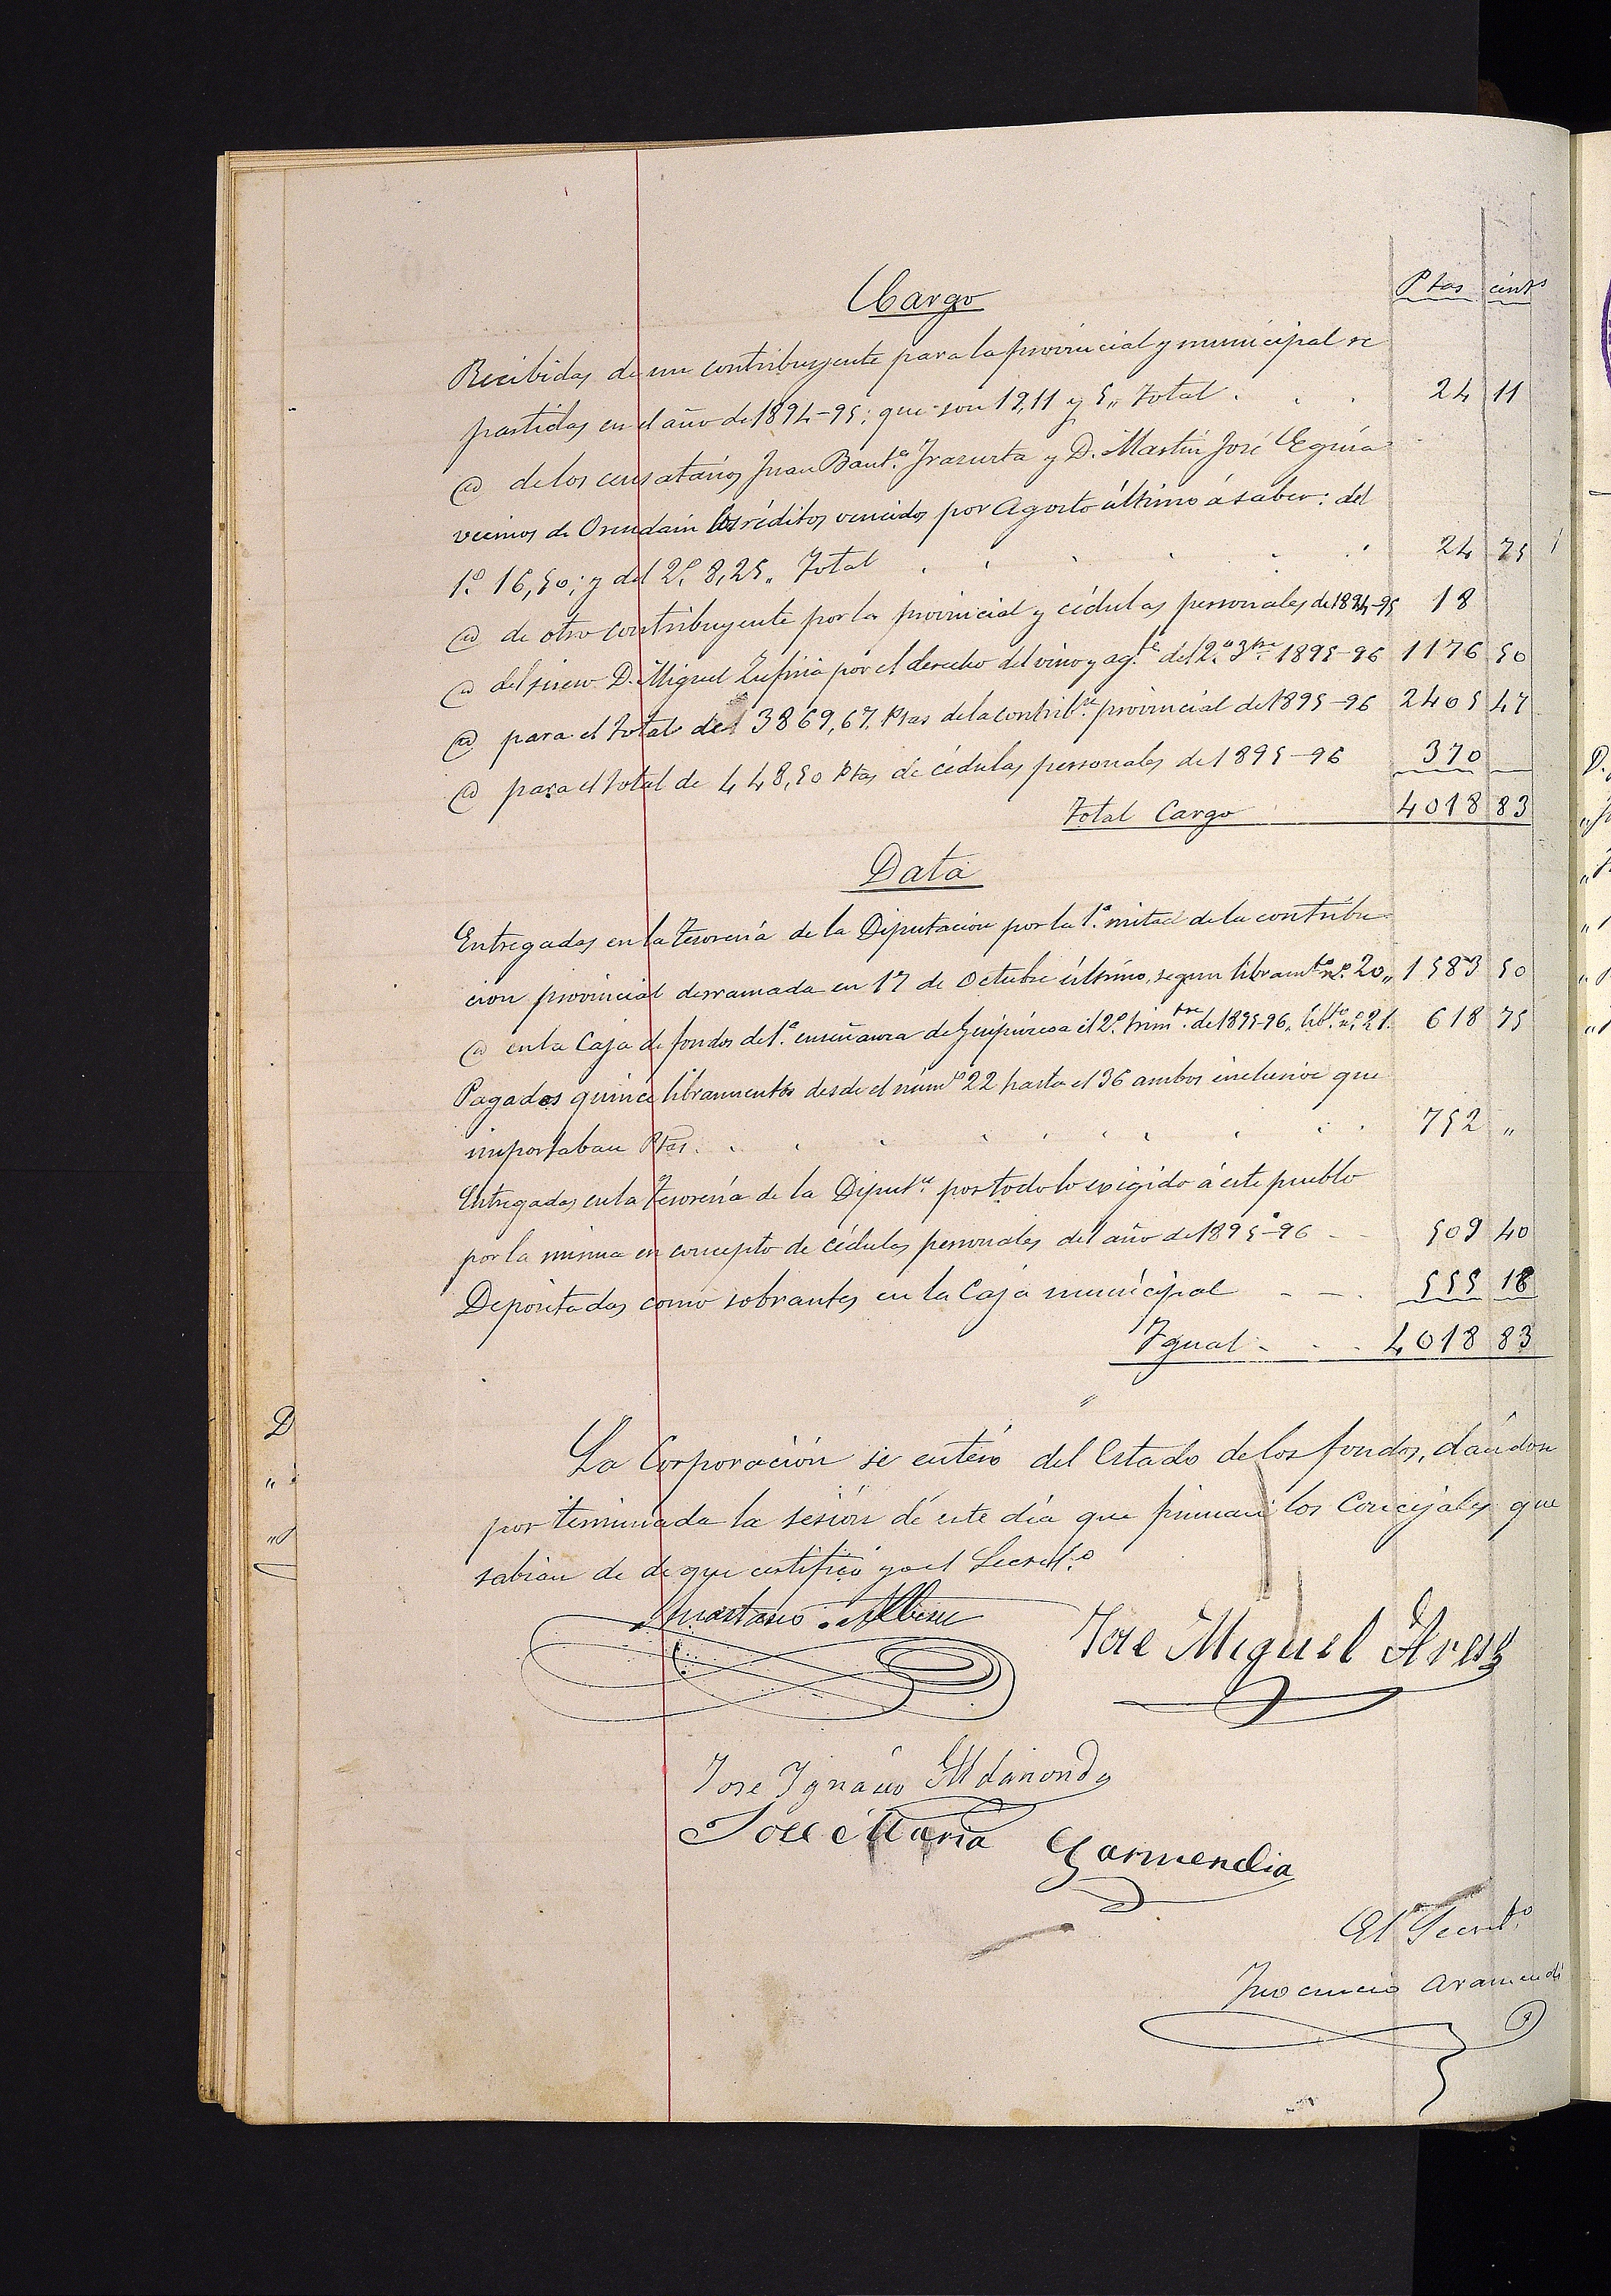 Ptas cents
Cargo
Recibidas de un contribuyente para la provincial y municipal re
partidas en el año de 1894-95; que son 19,11 y 5,, total . . . 24 11
@ de los censatarios Juan Baut.a Irazusta y D. Martin José Eguia
vecinos de Orendain los réditos vencidos por Agosto último á saber: del
1.º 16,50; y del 2.º 8,25,, Total . . . . . . 24 75
@ de otro contribuyente por la provincial y cédulas personales de 1894-95 18
@ del D. Miguel por el derecho del vino y ag.te del 2.º 1895-96 1176 50
@ para el total del 3869,67 Ptas de la contrib.on provincial de 1895-96 2405 47
@ para el total de 448,50 Ptas de cédulas personales de 1895-96 370
Total Cargo 4018 83
Data
Entregadas en la Tesorería de la Diputación por la 1.a mitad de la contribu
cion provincial derramada en 17 de Octubre último, segun libram.to n.º 20,, 1583 50
@ en la Caja de fondos de 1.a enseñanza de Guipúzcoa el 2.º trim.tre de 1895-96,, lib.to n.º 21. 618 75
Pagados quince libramientos desde el núm.º 22 hasta el 36 ambos inclusive que
importaban Ptas. . . . . . . . . . 752 ,,
Entregadas en la Tesorería de la Diput.on por todo lo exigido á este pueblo
por la misma en concepto de cédulas personales del año de 1895-96 - - 509 40
Depositadas como sobrantes en la Caja municipal - - . 555 18
Igual - . . 4018 83
"
La Corporación se enteró del Estado de los fondos, dandose
por terminada la sesión de este día que firman los Concejales que
sabian de de que certifico yo el Secret.º
Anastasio Albisu
Jose Miguel
Jose Ignacio
Jose Maria Garmendia
El Secret.º
Inocencio Aramendi